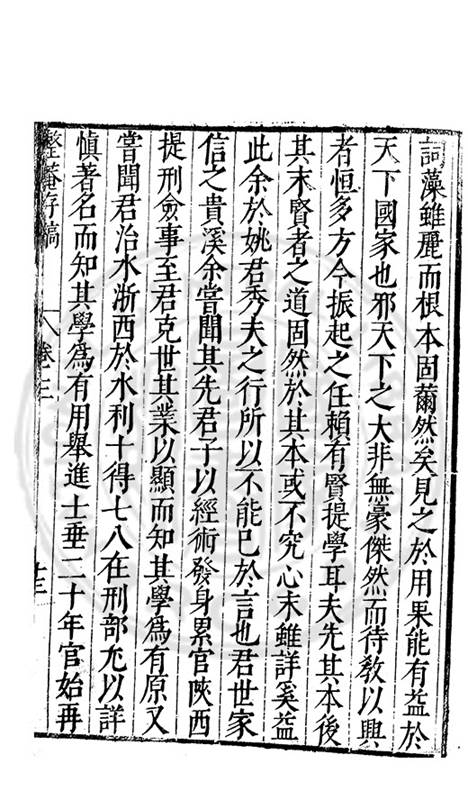 詞藻雖麗而根本固薾然矣見之於用果能有益於
天下國家也邪天下之大非無豪傑然而待教以興
者恒多方今振起之任賴有賢提學耳夫先其本後
其末賢者之道固然於其本或不究心末雖詳奚益
此余於姚君秀夫之行所以不能已於言也君世家
信之貴溪余嘗聞其先君子以經術發身累官陝西
提刑僉事至君克世其業以顯而知其學爲有原又
嘗聞君治水浙西於水利十得七八在刑部尤以詳
慎著名而知其學爲有用舉進士垂二十年官始再
整菴存稿 卷三 十三